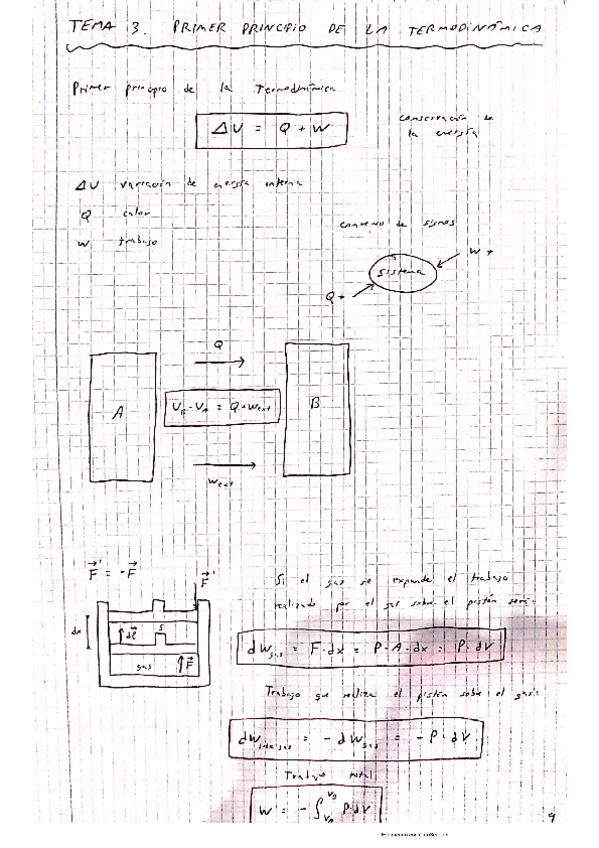 TEMA 3. PRIMER PRINCIPIO DE LA TERMODINÁMICA
Primer principio de la Termodinámica
ΔU = Q + W
conservación de
la energía
ΔU variación de energía interna
Q calor
W trabajo
convenio de signos
W +
sistema
Q +
Q
A
U_B - U_A = Q + W_ext
B
W_ext
F⃗' = -F⃗
F⃗'
Si el gas se expande el trabajo
realizado por el gas sobre el pistón será:
dx
dl⃗
S
gas
F⃗
dW_gas = F·dx = P·A·dx = P·dV
Trabajo que realiza el pistón sobre el gas:
= -dW_gas = -P·dV
Trabajo total
W = -∫_{V_A}^{V_B} P·dV
9